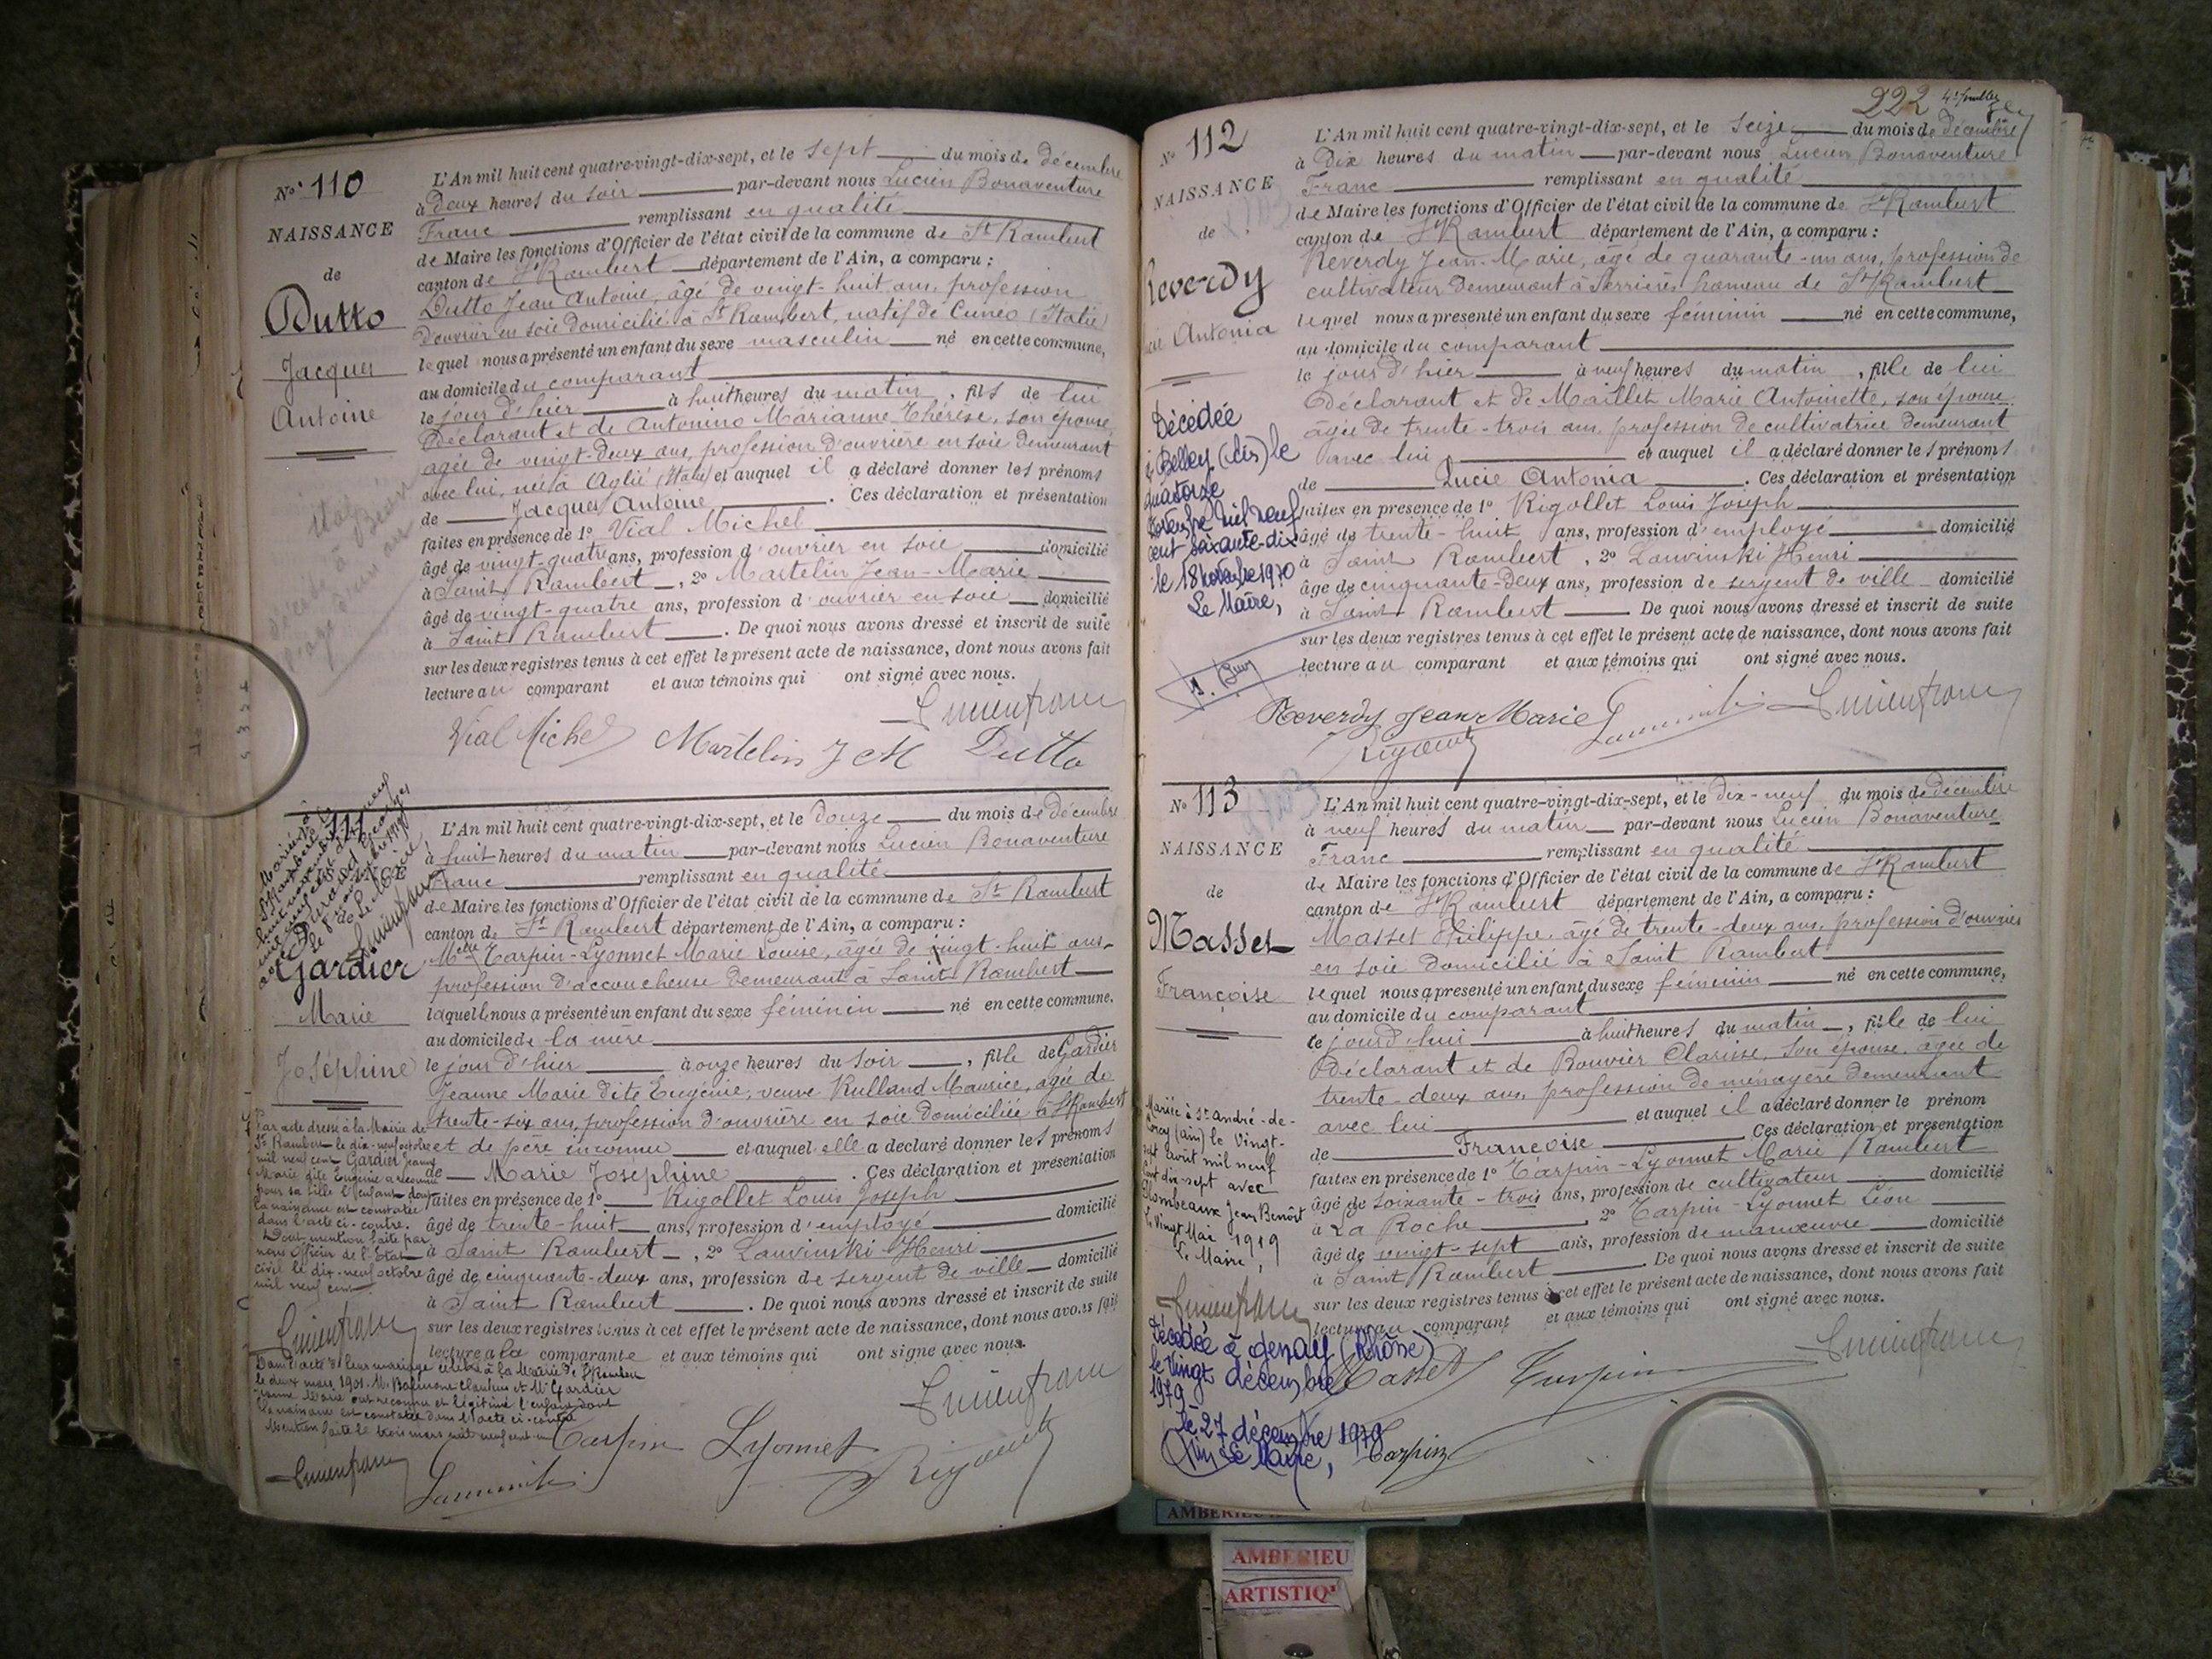 No 110
NAISSANCE
de
Dutto
Jacques
Antoine
L'An mil huit cent quatre-vingt-dix-sept, et le sept du mois de décembre
à Deux heures du soir par-devant nous Lucien Bonaventure
Franc remplissant en qualité
de Maire les fonctions d'Officier de l'état civil de la commune de St Rambert
canton de St Rambert département de l'Ain, a comparu :
Dutto Jean Antoine, âgé de vingt-huit ans, profession
d'ouvrier en soie domicilié à St Rambert, natif de Cuneo (Italie)
lequel nous a présenté un enfant du sexe masculin né en cette commune,
au domicile du comparant
le jour d'hier à huit heures du matin, fils de lui
Déclarant et de Antonino Marianne Thérèse, son épouse,
agée de vingt-deux ans, profession d'ouvrière en soie demeurant
avec lui, née à Aglié (Italie) et auquel il a déclaré donner les prénoms
de Jacques Antoine. Ces déclaration et présentation
faites en présence de 1º Vial Michel
âgé de vingt-quatre ans, profession d'ouvrier en soie domicilié
à Saint Rambert, 2º Martelin Jean-Marie
âgé de vingt-quatre ans, profession d'ouvrier en soie domicilié
à Saint Rambert. De quoi nous avons dressé et inscrit de suite
sur les deux registres tenus à cet effet le présent acte de naissance, dont nous avons fait
lecture au comparant et aux témoins qui ont signé avec nous.
Lucien franc
Vial Michel Martelin J M Dutto
111
Gardier
Marie
Joséphine
L'An mil huit cent quatre-vingt-dix-sept, et le douze du mois de décembre
à huit heures du matin par-devant nous Lucien Bonaventure
Franc remplissant en qualité
de Maire les fonctions d'Officier de l'état civil de la commune de St Rambert
canton de St Rambert département de l'Ain, a comparu :
Melle Tarpin-Lyonnet Marie Louise, âgée de vingt-huit ans
profession d'accoucheuse demeurant à Saint Rambert
laquelle nous a présenté un enfant du sexe féminin né en cette commune.
au domicile de la mère
le jour d'hier à onze heures du soir, fille de Gardier
Jeanne Marie dite Eugénie, veuve Rulland Maurice, agée de
trente-six ans, profession d'ouvrière en soie domiciliée à St Rambert
et de père inconnu et auquel elle a déclaré donner les prénoms
de Marie Joséphine. Ces déclaration et présentation
faites en présence de 1º Rigollet Louis Joseph
âgé de trente-huit ans, profession d'employé domicilié
à Saint Rambert, 2º Lauvinski Henri
âgé de cinquante-deux ans, profession de sergent de ville domicilié
à Saint Rambert. De quoi nous avons dressé et inscrit de suite
sur les deux registres tenus à cet effet le présent acte de naissance, dont nous avons fait
lecture à la comparante et aux témoins qui ont signé avec nous.
Par acte dressé à la Mairie de
St Rambert le dix-neuf octobre
mil neuf cent Gardier Jeanne
Marie dite Eugénie a reconnu
pour sa fille l'enfant dont
la naissance est constatée
dans l'acte ci-contre.
Dont mention faite par
nous Officier de l'Etat
civil le dix-neuf octobre
mil neuf cent.
Lucien franc
Dans l'acte de leur mariage célébré à la Mairie de St Rambert
le deux mars 1901, M. Claudius et Me Gardier
Jeanne Marie ont reconnu et légitimé l'enfant dont
la naissance est constatée dans l'acte ci-contre
Mention faite le trois mars mil neuf cent un
Lucien franc
Tarpin Lyonnet
222
No 112
NAISSANCE
de
Reverdy
Antonia
L'An mil huit cent quatre-vingt-dix-sept, et le seize du mois de décembre
à Dix heures du matin par-devant nous Lucien Bonaventure
Franc remplissant en qualité
de Maire les fonctions d'Officier de l'état civil de la commune de St Rambert
canton de St Rambert département de l'Ain, a comparu :
Reverdy Jean-Marie, âgé de quarante-un ans, profession de
cultivateur demeurant à Serrières hameau de St Rambert
lequel nous a présenté un enfant du sexe féminin né en cette commune,
au domicile du comparant
le jour d'hier à neuf heures du matin, fille de lui
Déclarant et de Maillet Marie Antoinette, son épouse,
âgée de trente-trois ans, profession de cultivatrice demeurant
avec lui et auquel il a déclaré donner les prénoms
de Lucie Antonia. Ces déclaration et présentation
faites en présence de 1º Rigollet Louis Joseph
âgé de trente-huit ans, profession d'employé domicilié
à Saint Rambert, 2º Lauvinski Henri
âgé de cinquante-deux ans, profession de sergent de ville domicilié
à Saint Rambert. De quoi nous avons dressé et inscrit de suite
sur les deux registres tenus à cet effet le présent acte de naissance, dont nous avons fait
lecture au comparant et aux témoins qui ont signé avec nous.
Décédée
à Belley (Ain) le
quatorze
Novembre mil neuf
cent soixante-dix
le 18 Novembre 1970
Le Maire,
Reverdy Jean Marie Lucien franc
No 113
NAISSANCE
de
Masset
Françoise
L'An mil huit cent quatre-vingt-dix-sept, et le dix-neuf du mois de décembre
à neuf heures du matin par-devant nous Lucien Bonaventure
Franc remplissant en qualité
de Maire les fonctions d'Officier de l'état civil de la commune de St Rambert
canton de St Rambert département de l'Ain, a comparu :
Masset Philippe âgé de trente-deux ans, profession d'ouvrier
en soie domicilié à Saint Rambert
lequel nous a présenté un enfant du sexe féminin né en cette commune,
au domicile du comparant
le jourd'hui à huit heures du matin, fille de lui
Déclarant et de Bouvier Clarisse, son épouse, agée de
trente-deux ans, profession de ménagère demeurant
avec lui et auquel il a déclaré donner le prénom
de Françoise. Ces déclaration et présentation
faites en présence de 1º Tarpin-Lyonnet Marie Rambert
âgé de soixante-trois ans, profession de cultivateur domicilié
à La Roche 2º Tarpin-Lyonnet Léon
âgé de vingt-sept ans, profession de manœuvre domicilié
à Saint Rambert. De quoi nous avons dressé et inscrit de suite
sur les deux registres tenus à cet effet le présent acte de naissance, dont nous avons fait
lecture au comparant et aux témoins qui ont signé avec nous.
Mariée à St André-de-
Corcy (Ain) le Vingt-
sept Août mil neuf
cent dix-sept avec
Jean Benoît
le Vingt Mai 1919
Le Maire,
Lucien franc
Décédée à Genay (Rhône)
le Vingt décembre
1979
Le 27 décembre 1979
Le Maire,
Masset Tarpin Lucien franc
Tarpin
AMBERIEU
ARTISTIQ